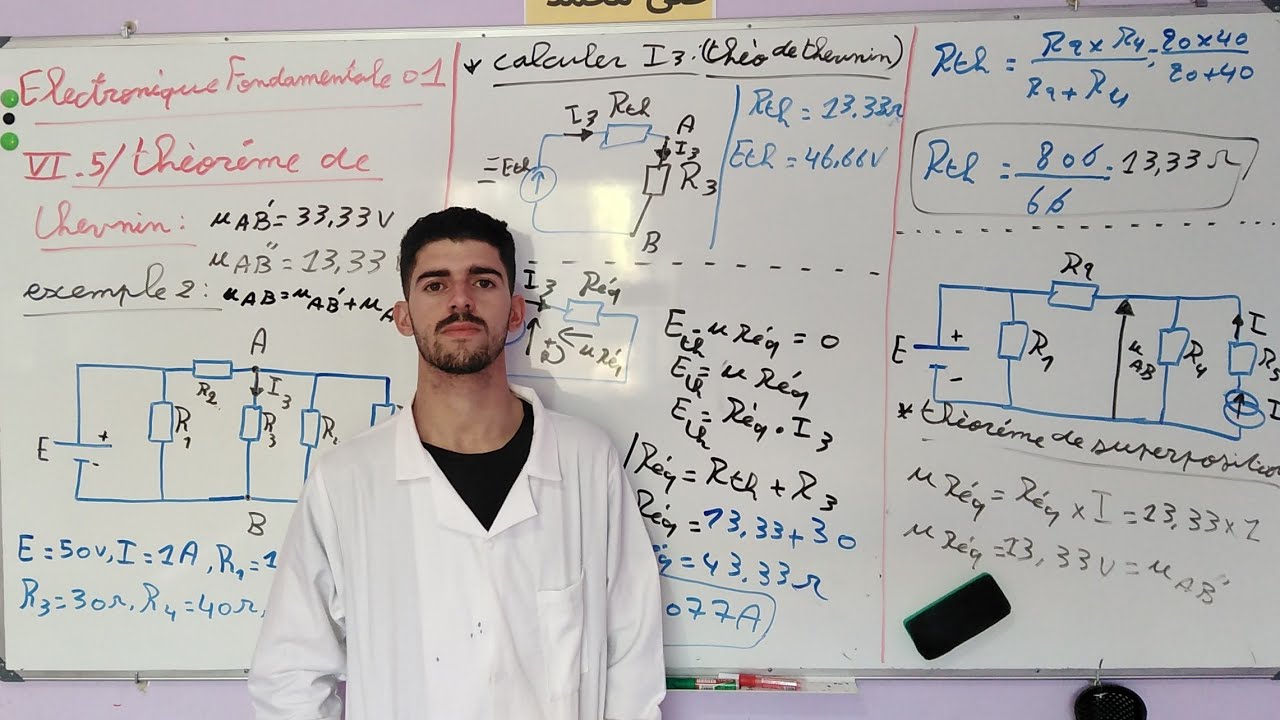 Electronique Fondamentale 01
VI.5/ théoréme de
thevnin:
uAB' = 33,33V
uAB'' = 13,33
exemple 2:
uAB = uAB' + uA
A
R2
I3
E
+
-
R1
R3
B
E = 50v, I = 1A, R1 = 1
R3 = 30Ω, R4 = 40Ω,
* calculer I3. (théo de thevnin)
I3
Rth
A
I3
= Eth
R3
B
Rth = 13.33Ω
Eth = 46,66V
I3
Réq
+
uRéq
Eth - uRéq = 0
Eth = uRéq
Eth = Réq . I3
Réq = Rth + R3
Réq = 13,33 + 30
éq = 43,33Ω
077A
Rth = R2 x R4 / R2 + R4 = 20 x 40 / 20 + 40
Rth = 800 / 60 = 13,33Ω
R2
E
+
-
R1
uAB
R4
I
R5
I
* théoréme de superposition
uRéq = Réq x I = 13,33 x 1
uRéq = 13,33V = uAB''